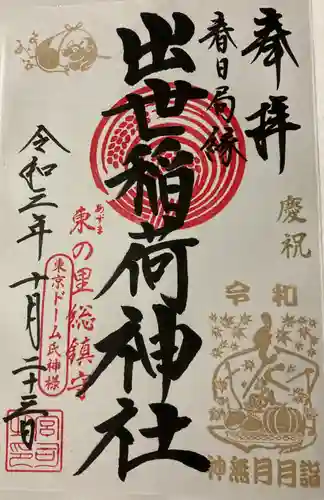 奉拝
慶祝
令和
神無月月詣
春日局縁
出世稲荷神社
東の里総鎮守
あずま
東京ドーム氏神様
令和三年十月二十三日
宮司之印